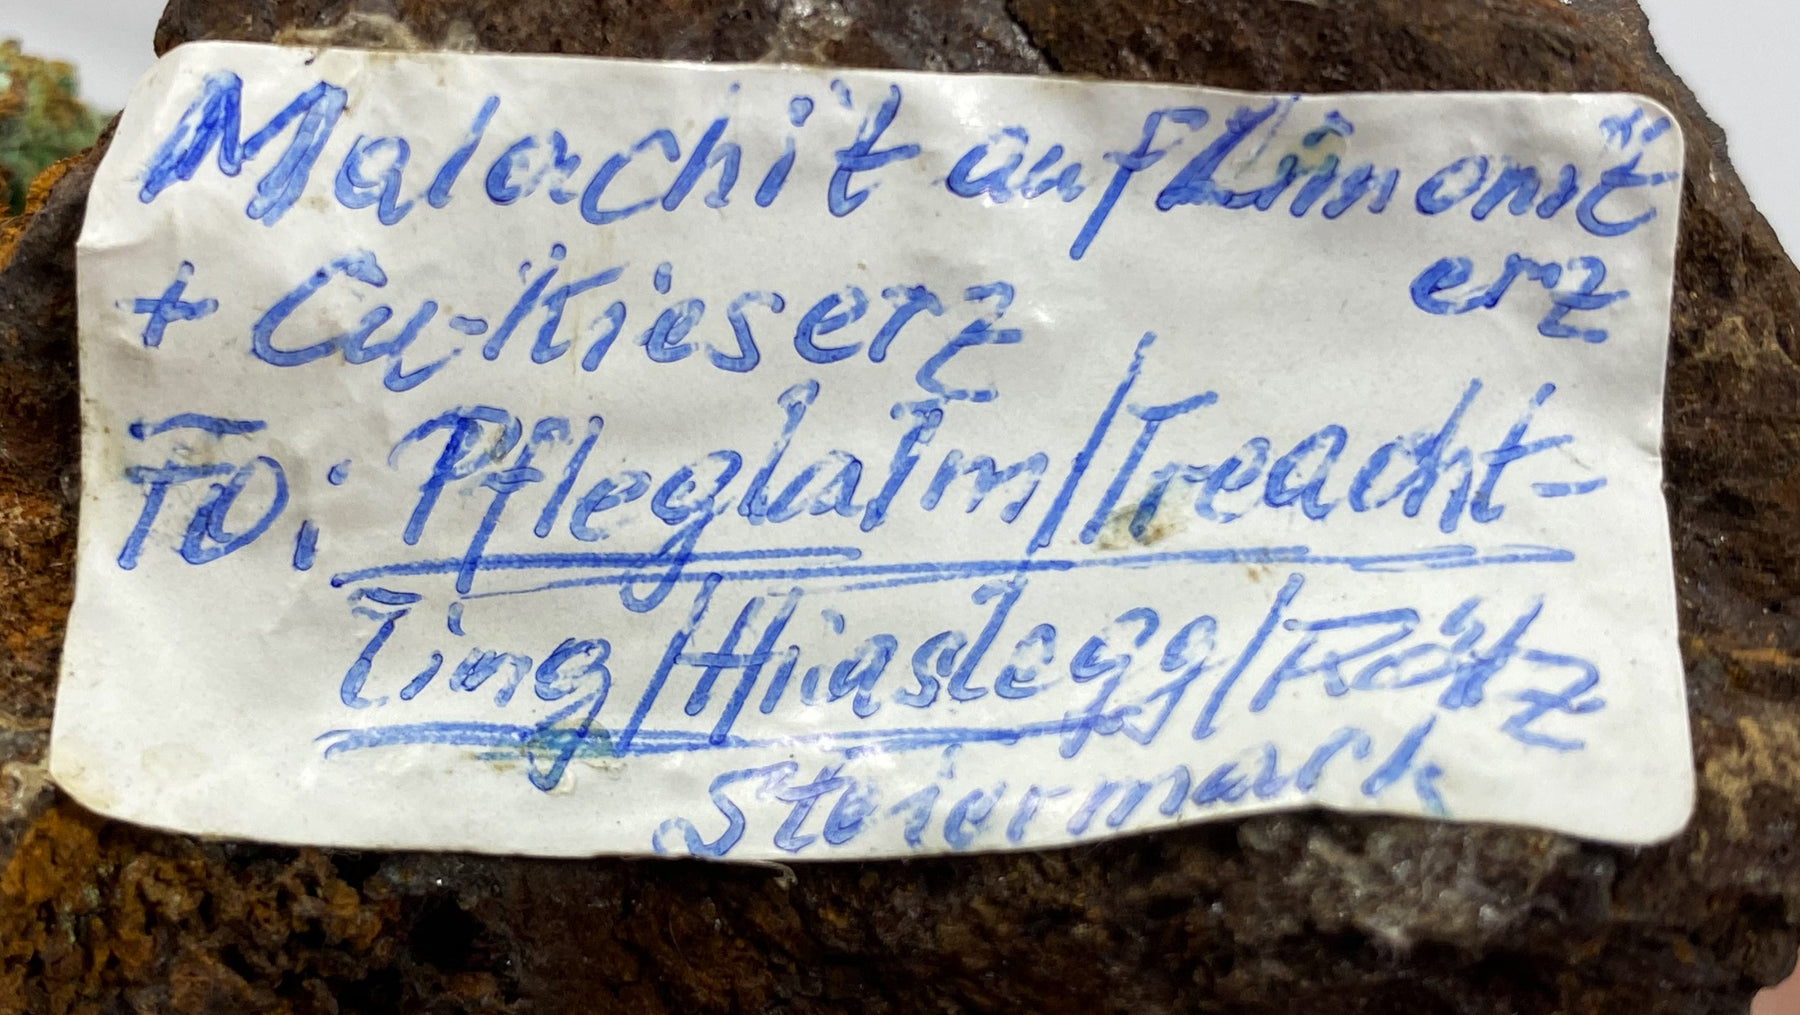 Malachit auf Limonit
erz
+ Cu-Kieserz
FO: Pfleglalm/Treacht-
ling/Hinslegg/Rötz
Steiermark